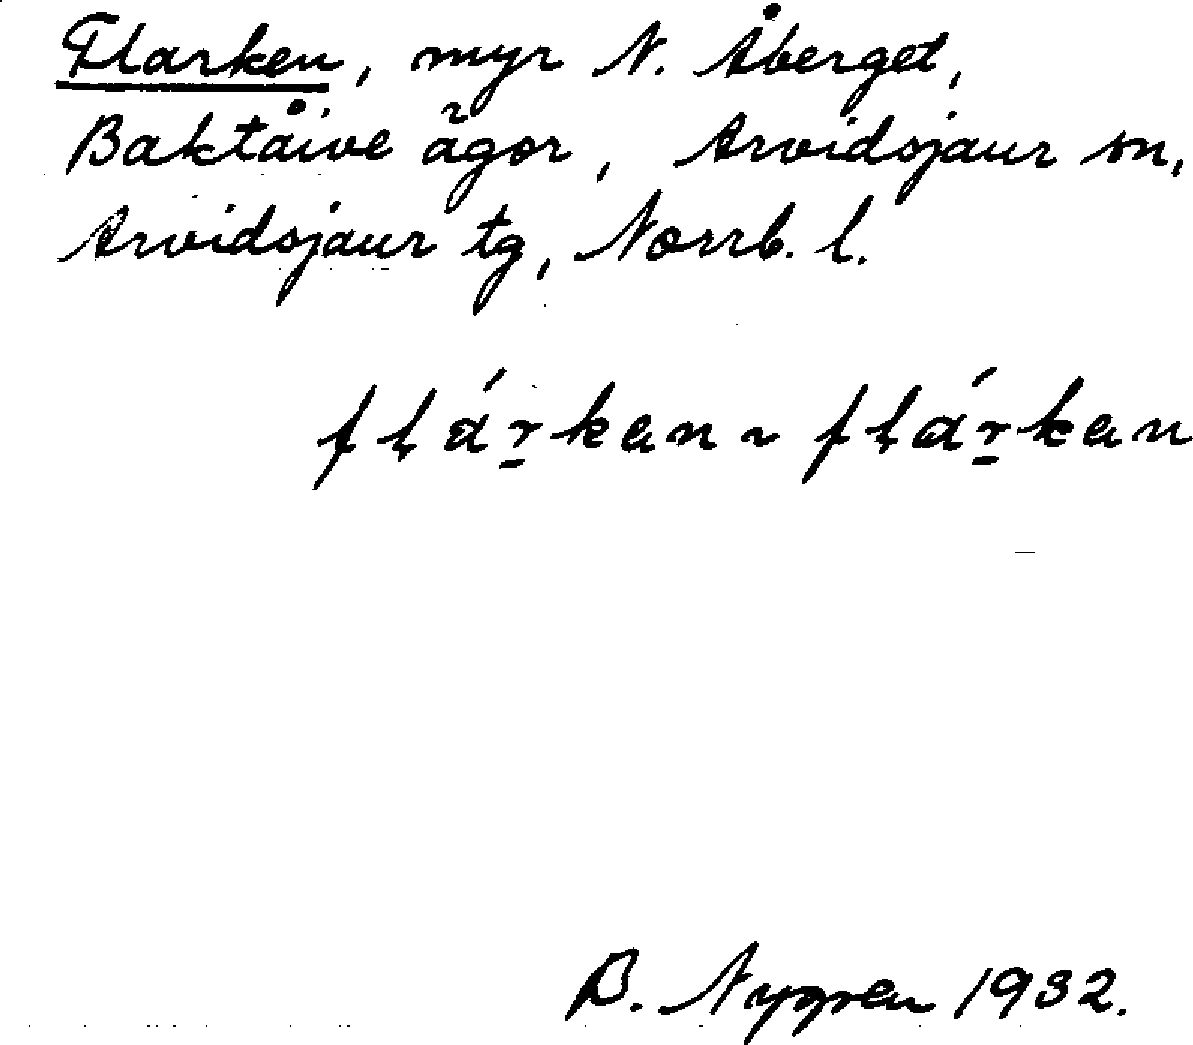 Flarken, myr N. Åberget,
Baktåive ägor, Arvidsjaur sn,
Arvidsjaur tg, Norrb. l.
flár̠kan ~ flár̠kan
B. Nygren 1932.